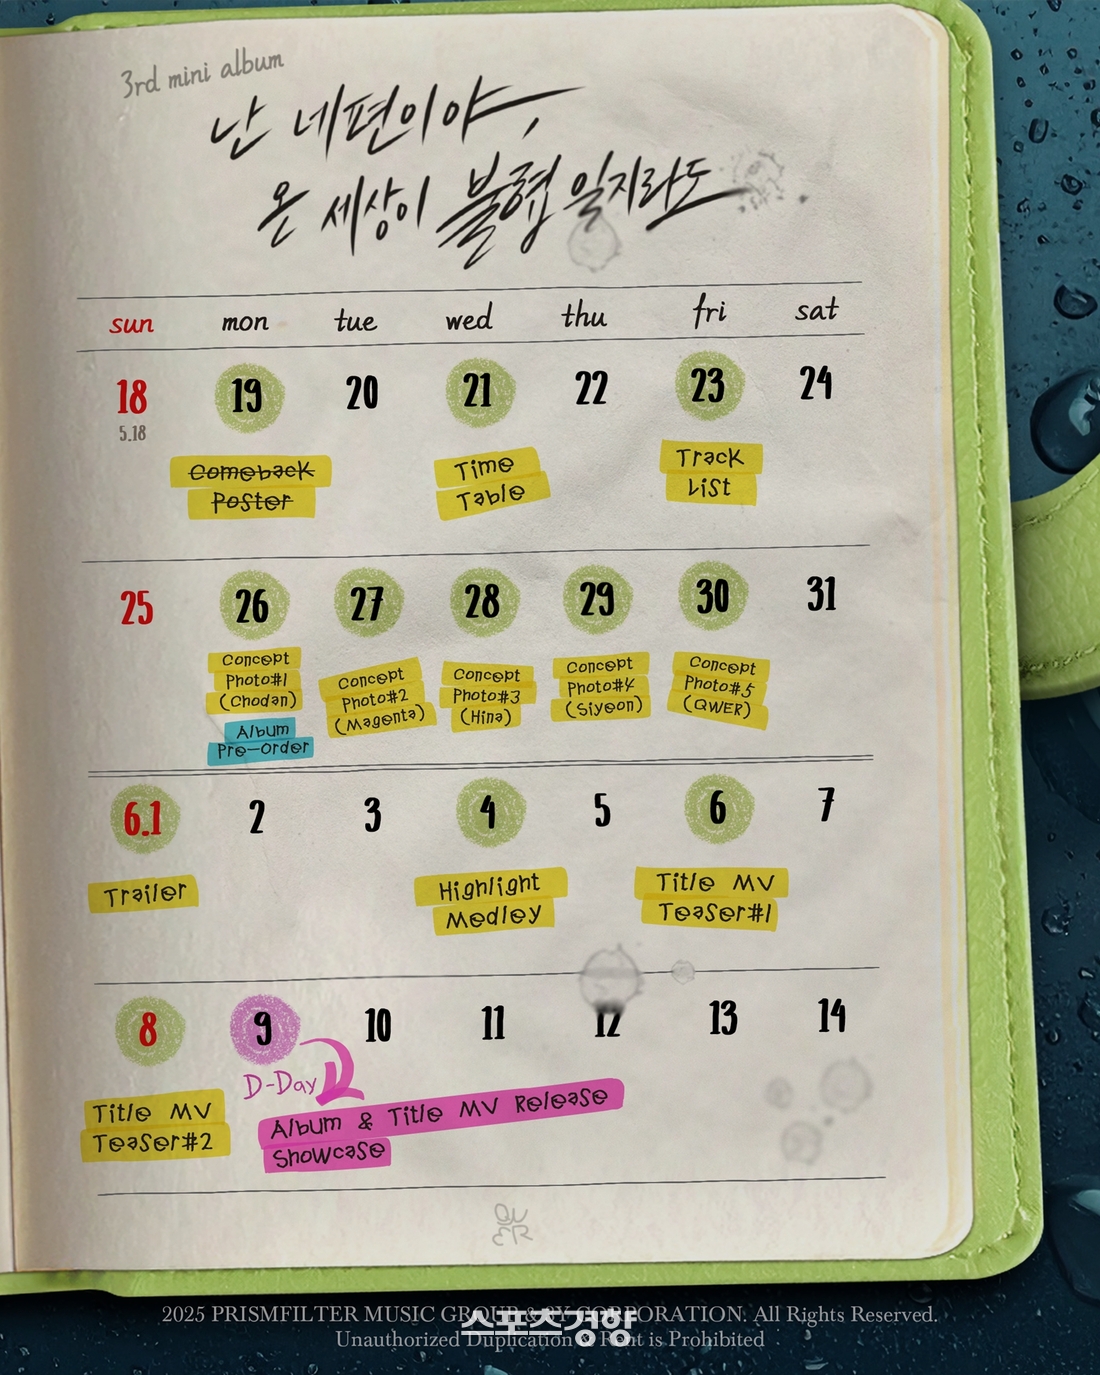 3rd mini album
난 네편이야,
온 세상이 불협일지라도
sun mon tue wed thu fri sat
18 19 20 21 22 23 24
5.18
Comeback
Poster
Time
Table
Track
List
25 26 27 28 29 30 31
Concept
Photo#1
(Chodan)
Album
Pre-Order
Concept
Photo#2
(Magenta)
Concept
Photo#3
(Hina)
Concept
Photo#4
(Siyeon)
Concept
Photo#5
(QWER)
6.1 2 3 4 5 6 7
Trailer
Highlight
Medley
Title MV
Teaser#1
8 9 10 11 12 13 14
D-Day
Title MV
Teaser#2
Album & Title MV Release
Showcase
QW
ER
2025 PRISMFILTER MUSIC GROUP & BY CORPORATION. All Rights Reserved.
스포츠경향
Unauthorized Duplication & Rent is Prohibited